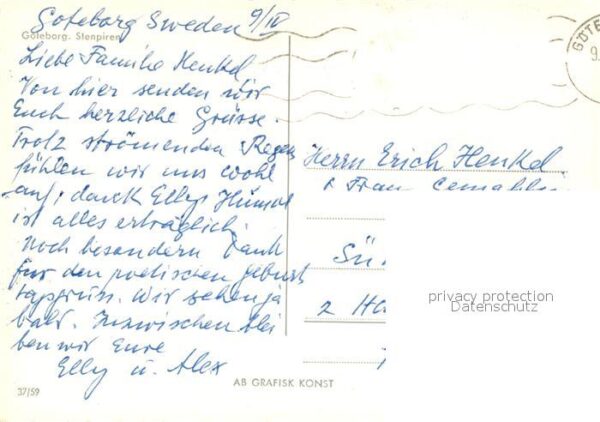 Goteborg Sweden 9/IV
Göteborg. Stenpiren
Liebe Familie Henkel
Von hier senden wir
Euch herzliche Grüsse.
Trotz strömenden Regen
fühlen wir uns wohl
auf, dank Ellys Humor
ist alles erträglich.
Noch besondern Dank
für den poetischen Geburts
tagsgruss. Wir sehen ja
bald. Inzwischen blei
ben wir Eure
Elly u. Alex
37/59
GÖTE
9.
Herrn Erich Henkel
& Frau Gemahlin
Sü
2 Ha
privacy protection
Datenschutz
AB GRAFISK KONST